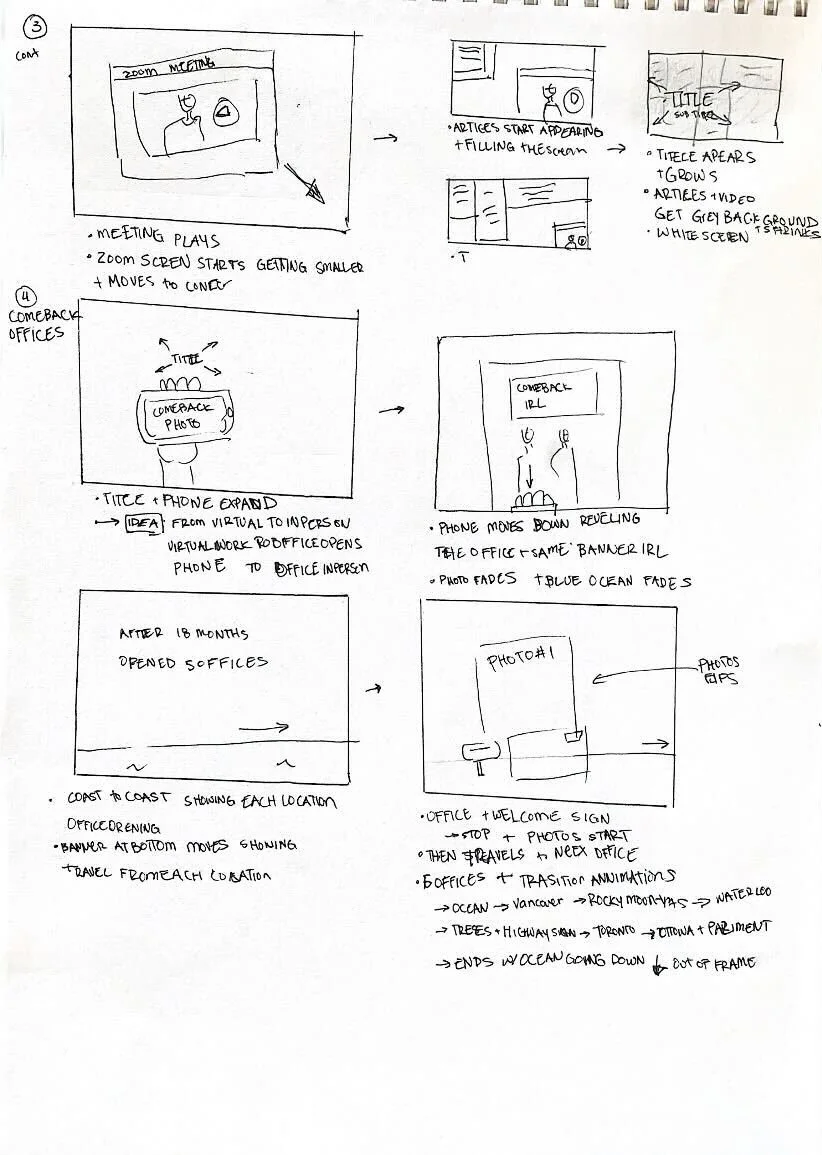 3
CONT
ZOOM MEETING
• MEETING PLAYS
• ZOOM SCREN STARTS GETTING SMALLER
+ MOVES TO
• ARTICES START APPEARING
+ FILLING THE SCREEN
• T
TITLE
SUBTITLE
• TITECE APEARS
+ GROWS
• ARTICES + VIDEO
GET GREY BACKGROUND
• WHITE SCREEN + SHRINKS
4
COMEBACK
OFFICES
TITLE
COMEBACK
PHOTO
• TITLE + PHONE EXPAND
→ IDEA: FROM VIRTUAL TO INPERSON
VIRTUAL WORK TO OFFICE OPENS
PHONE TO OFFICE INPERSON
COMEBACK
IRL
• PHONE MOVES DOWN REVELING
THE OFFICE + SAME BANNER IRL
• PHOTO FADES + BLUE OCEAN FADES
AFTER 18 MONTHS
OPENED 5 OFFICES
• COAST TO COAST SHOWING EACH LOCATION
OFFICE OPENING
• BANNER AT BOTTOM MOVES SHOWING
TRAVEL FROM EACH LOCATION
PHOTO #1
PHOTOS
FLIPS
• OFFICE + WELCOME SIGN
→ STOP + PHOTOS START
• THEN TRAVELS to NEEX OFFICE
• 5 OFFICES + TRASITION ANNIMATIONS
→ OCEAN → Vancouver → ROCKY MOUNTAINS → WATERLOO
→ TREES + HIGHWAY SIGN → TORONTO → OTTOWA + PARIMENT
→ ENDS W/ OCEAN GOING DOWN ↓ OUT OF FRAME